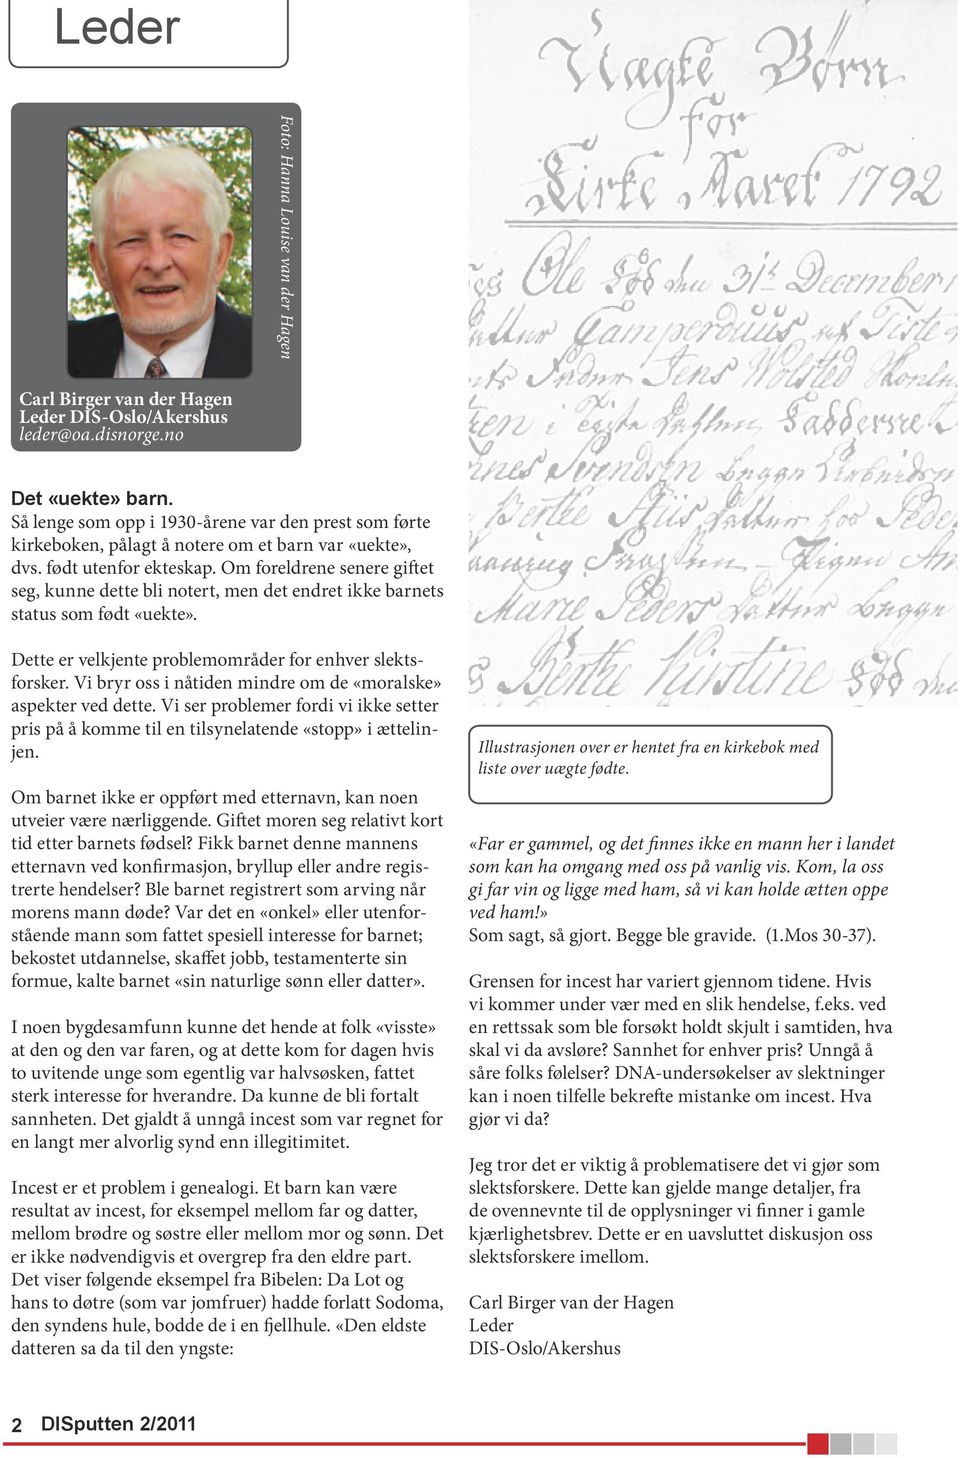 Leder
Foto: Hanna Louise van der Hagen
Carl Birger van der Hagen
Leder DIS-Oslo/Akershus
leder@oa.disnorge.no
Det «uekte» barn.
Så lenge som opp i 1930-årene var den prest som førte
kirkeboken, pålagt å notere om et barn var «uekte»,
dvs. født utenfor ekteskap. Om foreldrene senere giftet
seg, kunne dette bli notert, men det endret ikke barnets
status som født «uekte».
Dette er velkjente problemområder for enhver slekts-
forsker. Vi bryr oss i nåtiden mindre om de «moralske»
aspekter ved dette. Vi ser problemer fordi vi ikke setter
pris på å komme til en tilsynelatende «stopp» i ættelin-
jen.
Om barnet ikke er oppført med etternavn, kan noen
utveier være nærliggende. Giftet moren seg relativt kort
tid etter barnets fødsel? Fikk barnet denne mannens
etternavn ved konfirmasjon, bryllup eller andre regis-
trerte hendelser? Ble barnet registrert som arving når
morens mann døde? Var det en «onkel» eller utenfor-
stående mann som fattet spesiell interesse for barnet;
bekostet utdannelse, skaffet jobb, testamenterte sin
formue, kalte barnet «sin naturlige sønn eller datter».
I noen bygdesamfunn kunne det hende at folk «visste»
at den og den var faren, og at dette kom for dagen hvis
to uvitende unge som egentlig var halvsøsken, fattet
sterk interesse for hverandre. Da kunne de bli fortalt
sannheten. Det gjaldt å unngå incest som var regnet for
en langt mer alvorlig synd enn illegitimitet.
Incest er et problem i genealogi. Et barn kan være
resultat av incest, for eksempel mellom far og datter,
mellom brødre og søstre eller mellom mor og sønn. Det
er ikke nødvendigvis et overgrep fra den eldre part.
Det viser følgende eksempel fra Bibelen: Da Lot og
hans to døtre (som var jomfruer) hadde forlatt Sodoma,
den syndens hule, bodde de i en fjellhule. «Den eldste
datteren sa da til den yngste:
Uægte Børn
for
Kirke Aaret 1792
Ole Fød den 31te Decembers
Datter Camperduus af Tiste
Jens Wolsted
Fadderne
Svendsen begge
Berthe Datter Peder
Pigen An
Marie Peders Datter begge
Berthe kirstine Fød den
Illustrasjonen over er hentet fra en kirkebok med
liste over uægte fødte.
«Far er gammel, og det finnes ikke en mann her i landet
som kan ha omgang med oss på vanlig vis. Kom, la oss
gi far vin og ligge med ham, så vi kan holde ætten oppe
ved ham!»
Som sagt, så gjort. Begge ble gravide. (1.Mos 30-37).
Grensen for incest har variert gjennom tidene. Hvis
vi kommer under vær med en slik hendelse, f.eks. ved
en rettssak som ble forsøkt holdt skjult i samtiden, hva
skal vi da avsløre? Sannhet for enhver pris? Unngå å
såre folks følelser? DNA-undersøkelser av slektninger
kan i noen tilfelle bekrefte mistanke om incest. Hva
gjør vi da?
Jeg tror det er viktig å problematisere det vi gjør som
slektsforskere. Dette kan gjelde mange detaljer, fra
de ovennevnte til de opplysninger vi finner i gamle
kjærlighetsbrev. Dette er en uavsluttet diskusjon oss
slektsforskere imellom.
Carl Birger van der Hagen
Leder
DIS-Oslo/Akershus
2 DISputten 2/2011